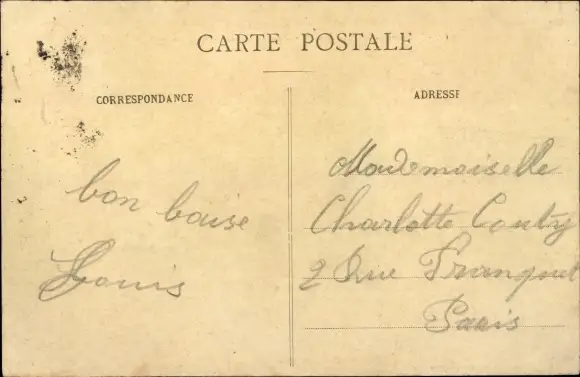 CARTE POSTALE
CORRESPONDANCE
ADRESSE
bon baise
Louis
Mademoiselle
Charlotte Conty
2 Rue Franquet
Paris